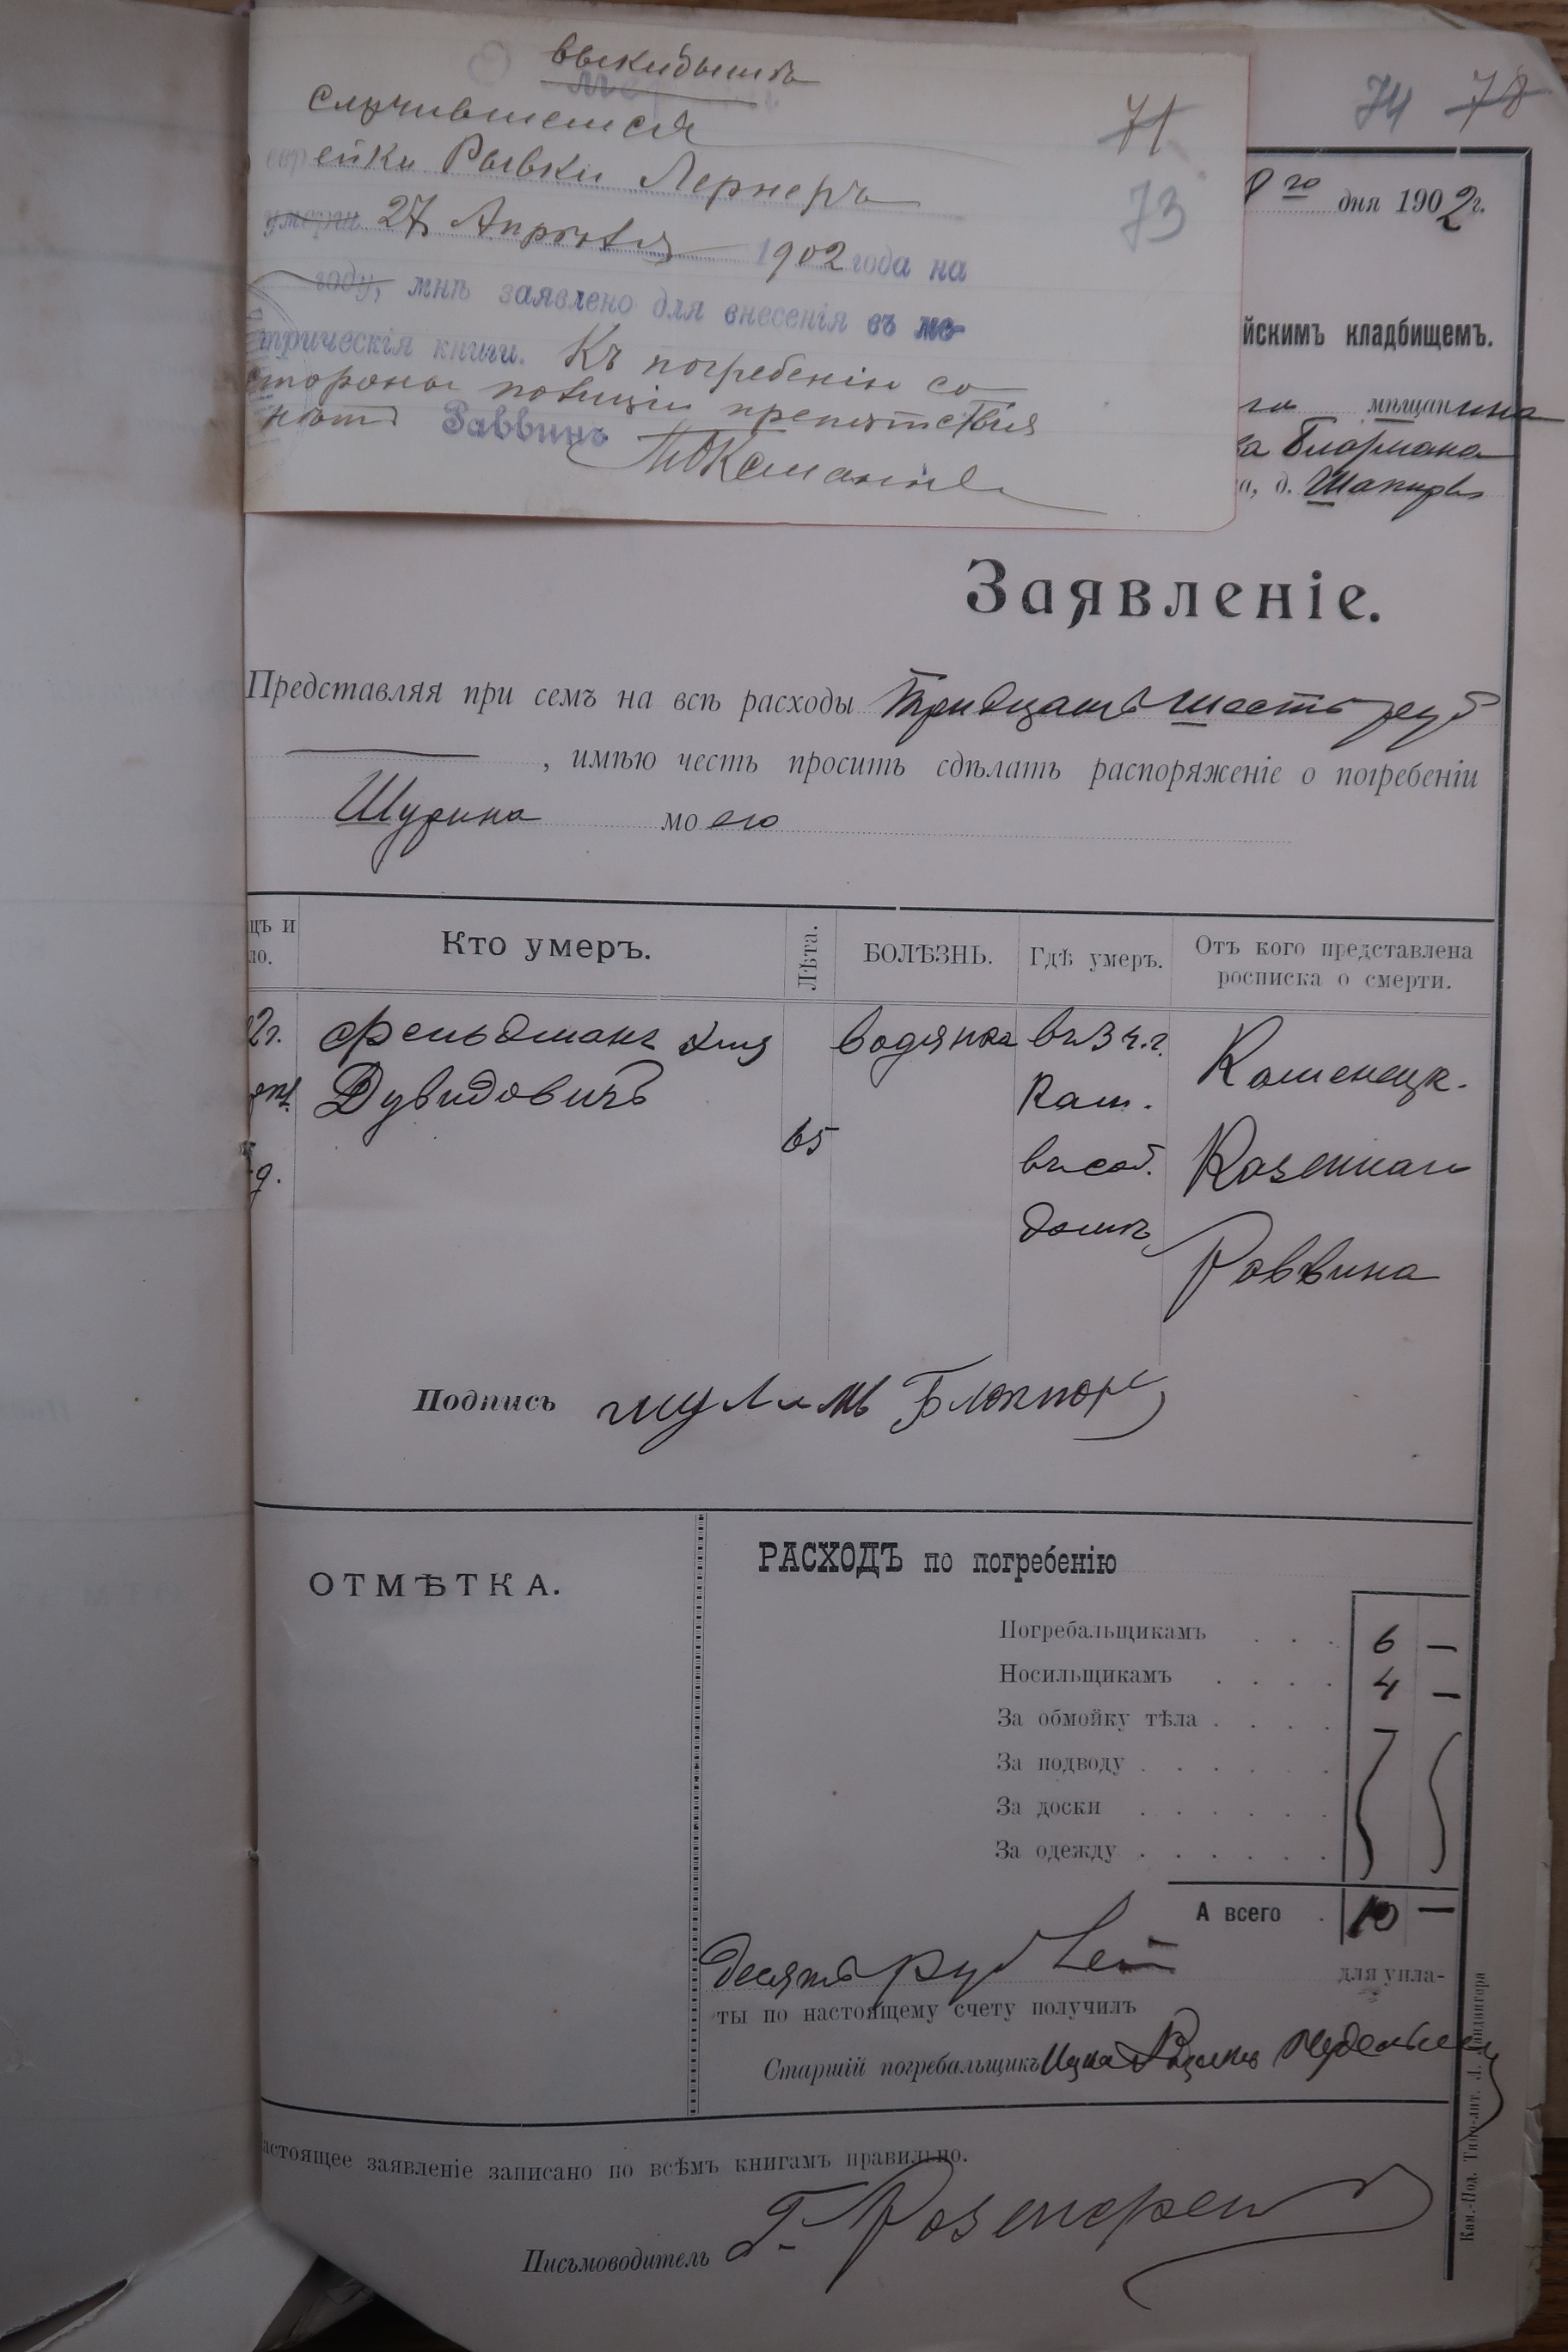 выкидышъ
случившемся
71
74 78
еврейки Рывки Лернеръ
73
умерш 27 Апрѣля 1902 года на
8 го дня 1902г.
году, мнѣ заявлено для внесенія въ ме-
трическія книги. Къ погребенію со
йскимъ кладбищемъ.
стороны полиціи препятствія
мѣщанина
нѣтъ Раввинъ
а, д. Шапиры
Заявленіе.
Представляя при семъ на всѣ расходы Тридцать шесть руб
, имѣю честь просить сдѣлать распоряженіе о погребеніи
Шурина моего
цъ и
ло.
Кто умеръ.
Лѣта.
БОЛѢЗНЬ.
Гдѣ умеръ.
Отъ кого представлена
росписка о смерти.
2г.
Фельдманъ
Дувидовичъ
65
водянка
въ 3 ч. г.
Кам.
въ соб.
домѣ
Каменецк.
Казеннаго
Раввина
Подпись
ОТМѢТКА.
РАСХОДЪ по погребенію
Погребальщикамъ . . . 6 —
Носильщикамъ . . . . 4 —
За обмойку тѣла . . . .
За подводу . . . . . .
За доски . . . . . .
За одежду . . . . . .
А всего . 10 —
Десять руб
для упла-
ты по настоящему счету получилъ
Старшій погребальщикъ
Настоящее заявленіе записано по всѣмъ книгамъ правильно.
Письмоводитель Г. Розенфельд
Кам.-Под. Типо-лит. Л. Ландвигера